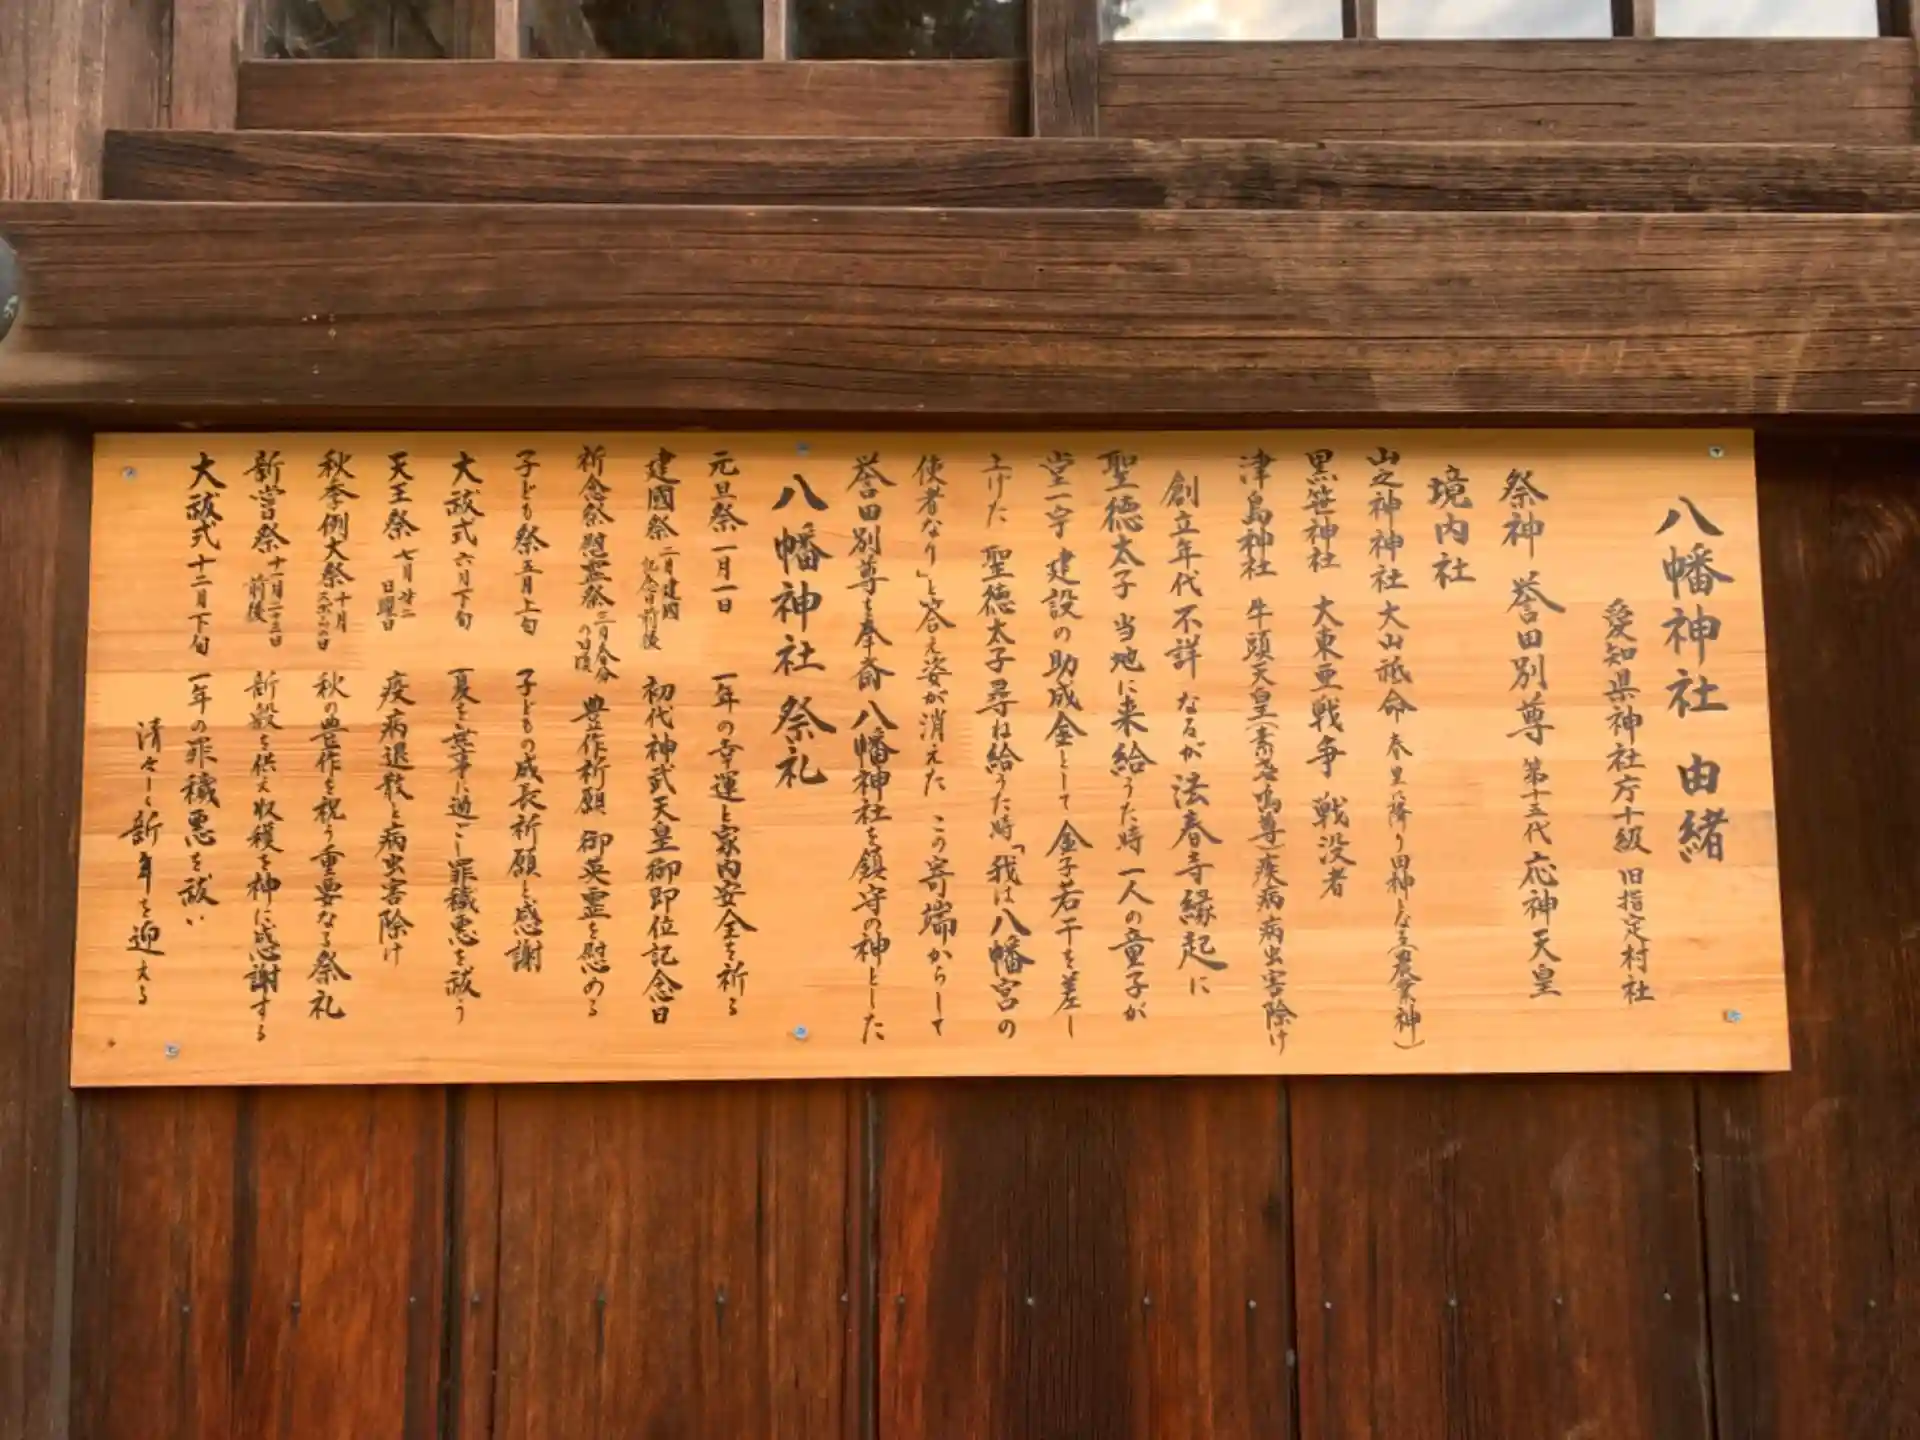 八幡神社 由緒
愛知県神社庁十級 旧指定村社
祭神 誉田別尊 第十五代 応神天皇
境内社
山之神神社 大山祗命 春里に降り田神となる(農業神)
黒笹神社 大東亜戦争 戦没者
津島神社 牛頭天皇(素盞嗚尊)疾病病虫害除け
創立年代 不詳 なるが 法春寺縁起に
聖徳太子 当地に来給うた時 一人の童子が
堂一宇 建設の助成金として 金子若干を差し
上げた 聖徳太子尋ね給うた時「我は八幡宮の
使者なり」と答え姿が消えた この寄端からして
誉田別尊を奉斎 八幡神社を鎮守の神とした
八幡神社 祭礼
元旦祭 一月一日 一年の幸運と家内安全を祈る
建國祭 二月建國記念日前後 初代神武天皇御即位記念日
祈念祭慰霊祭 三月春分の日頃 豊作祈願 御英霊を慰める
子ども祭 五月上旬 子どもの成長祈願と感謝
大祓式 六月下旬 夏を無事に過ごし罪穢悪を祓う
天王祭 七月第二日曜日 疫病退散と病虫害除け
秋季例大祭 十月 秋の豊作を祝う重要なる祭礼
新嘗祭 十一月二十三日前後 新穀を供え収穫を神に感謝する
大祓式 十二月下旬 一年の罪穢悪を祓い
清々しく新年を迎える